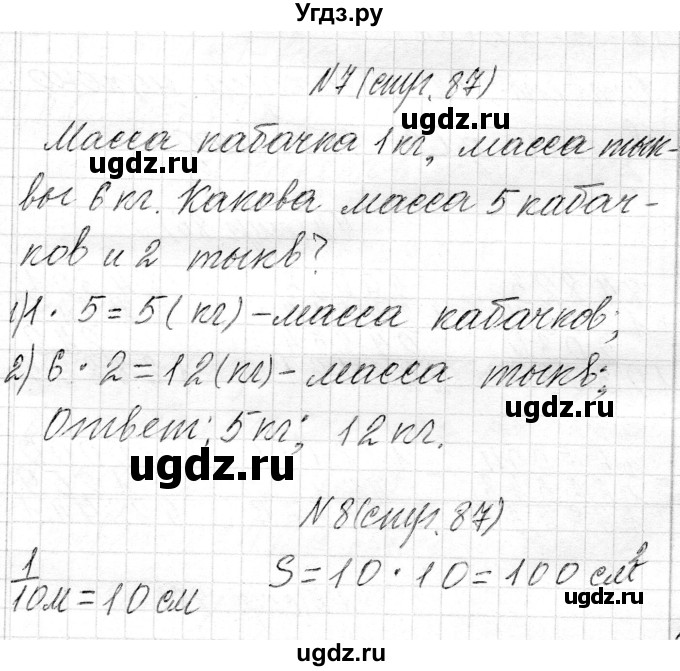 Угдз.ру
N7 (стр. 87)
ugdz.ru
Масса кабачка 1 кг, масса тык-
ugdz.ru
вы 6 кг. Какова масса 5 кабач-
ков и 2 тыкв?
1) 1 · 5 = 5 (кг) - масса кабачков;
2) 6 · 2 = 12 (кг) - масса тыкв;
ugdz.ru
Ответ: 5 кг; 12 кг.
ugdz.ru
N 8 (стр. 87)
1/10 м = 10 см
S = 10 · 10 = 100 см²
ugdz.ru